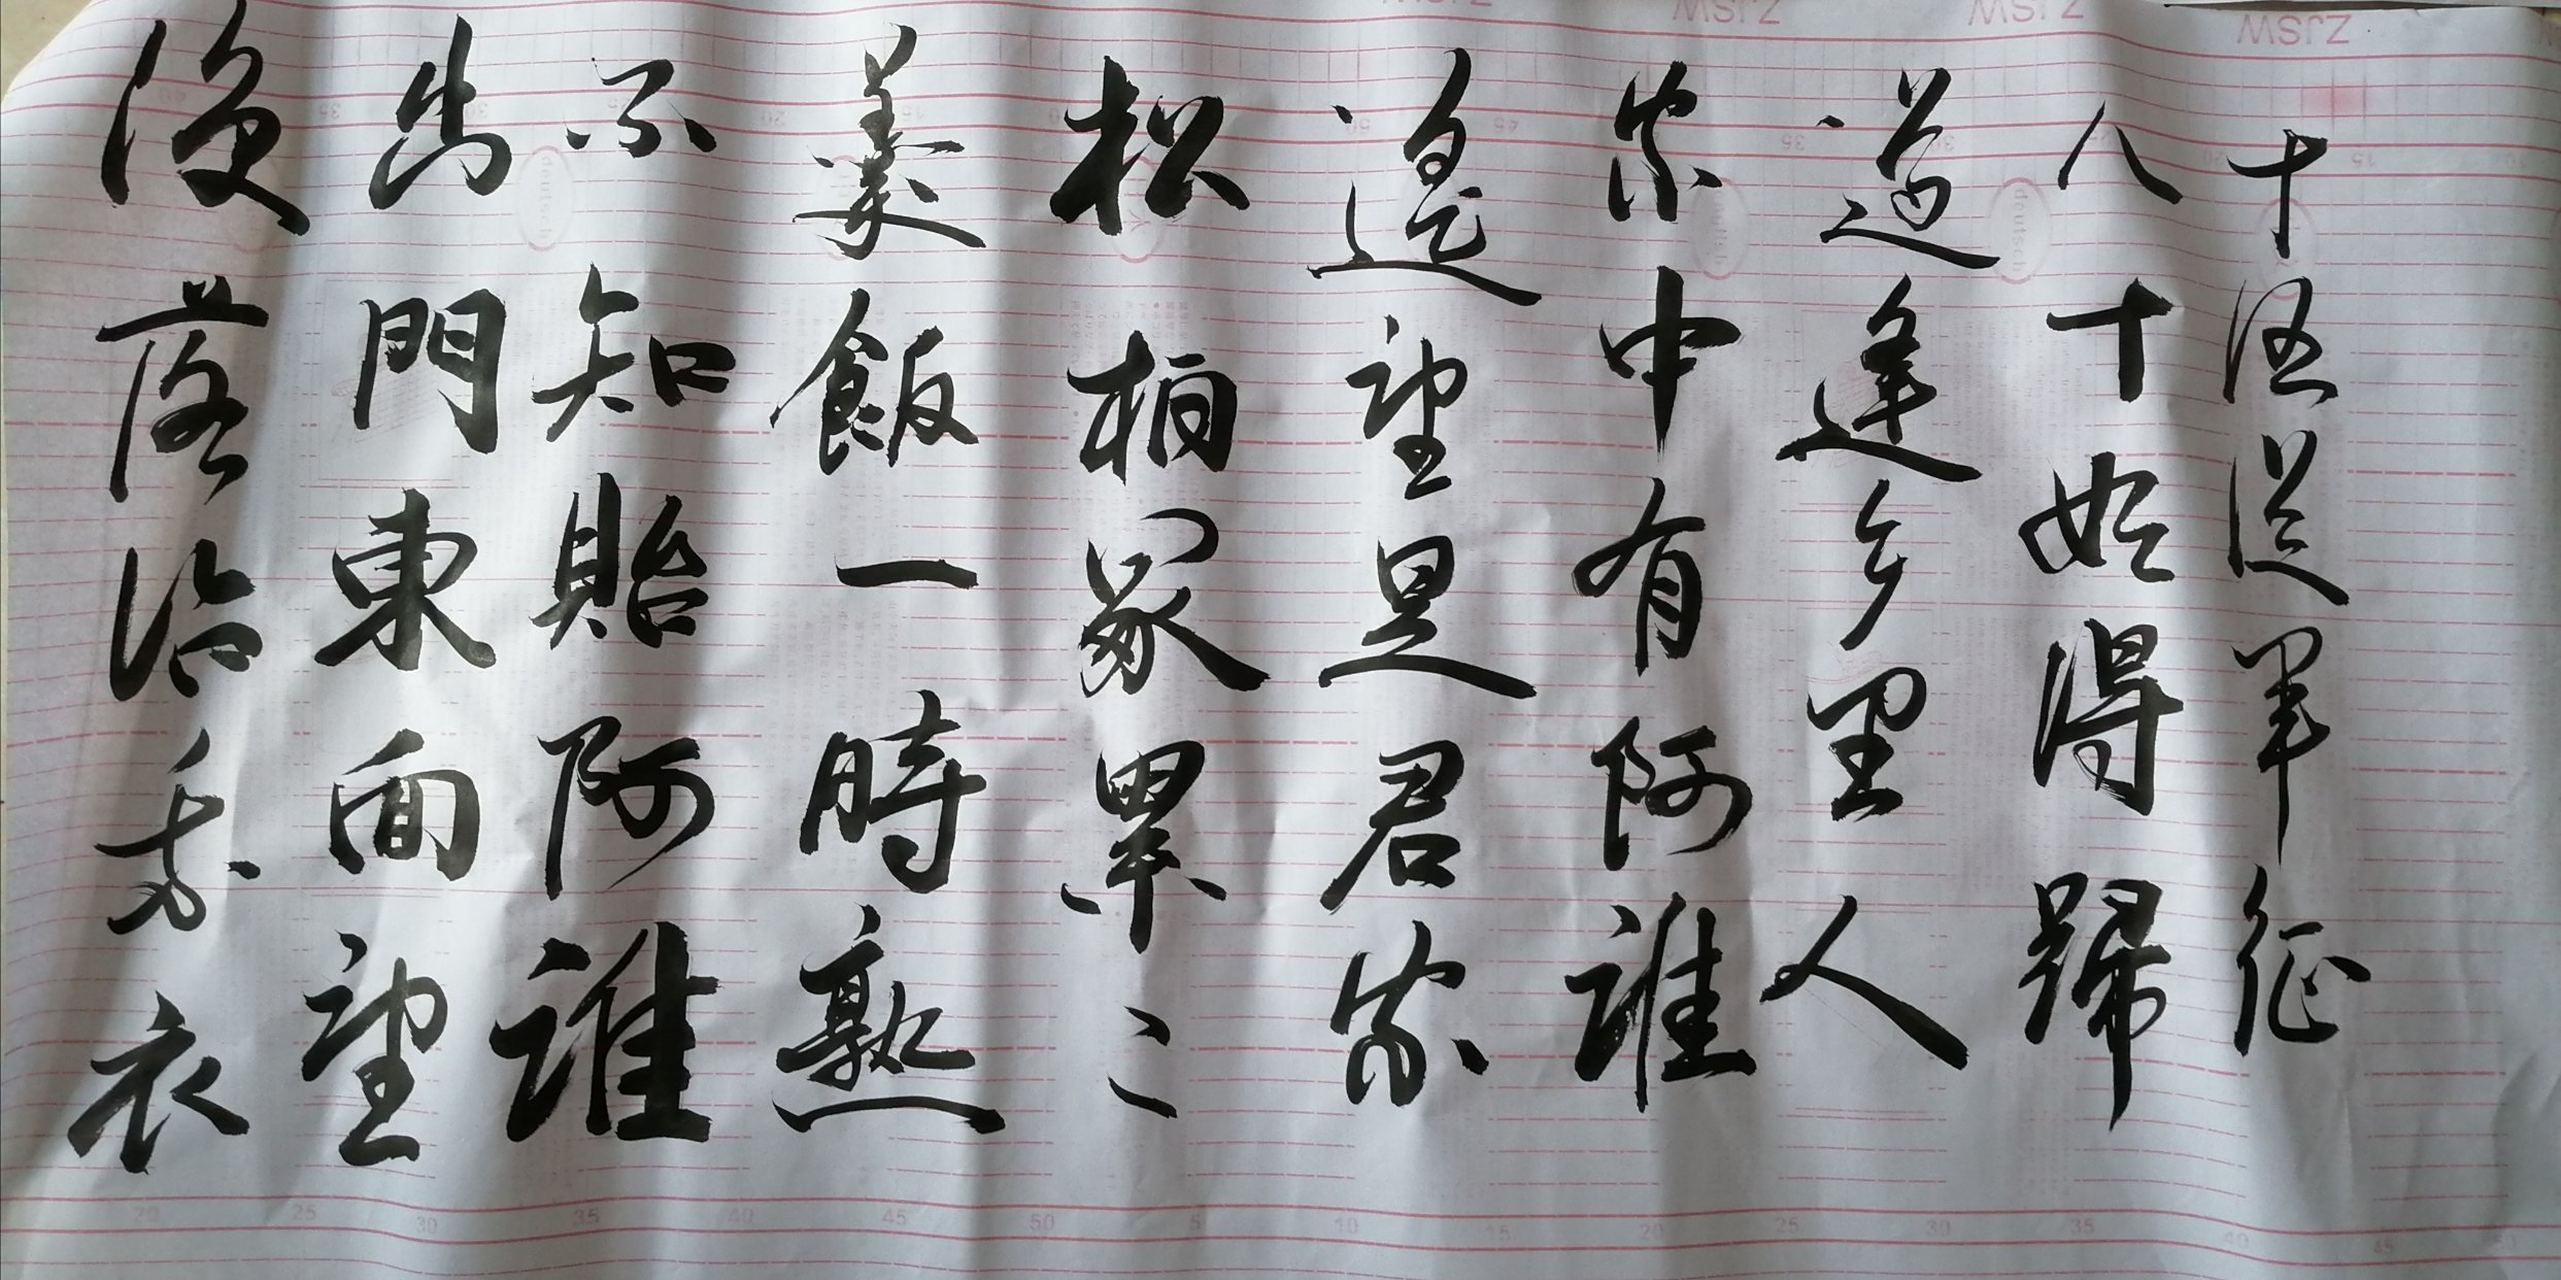 十伍從軍征
八十始得歸
道逢乡里人
家中有阿誰
遥望是君家
松柏冢累々
羹飯一時熟
不知貽阿誰
出門東面望
淚落沾我衣
ZJSW
ZJSW
ZJSW